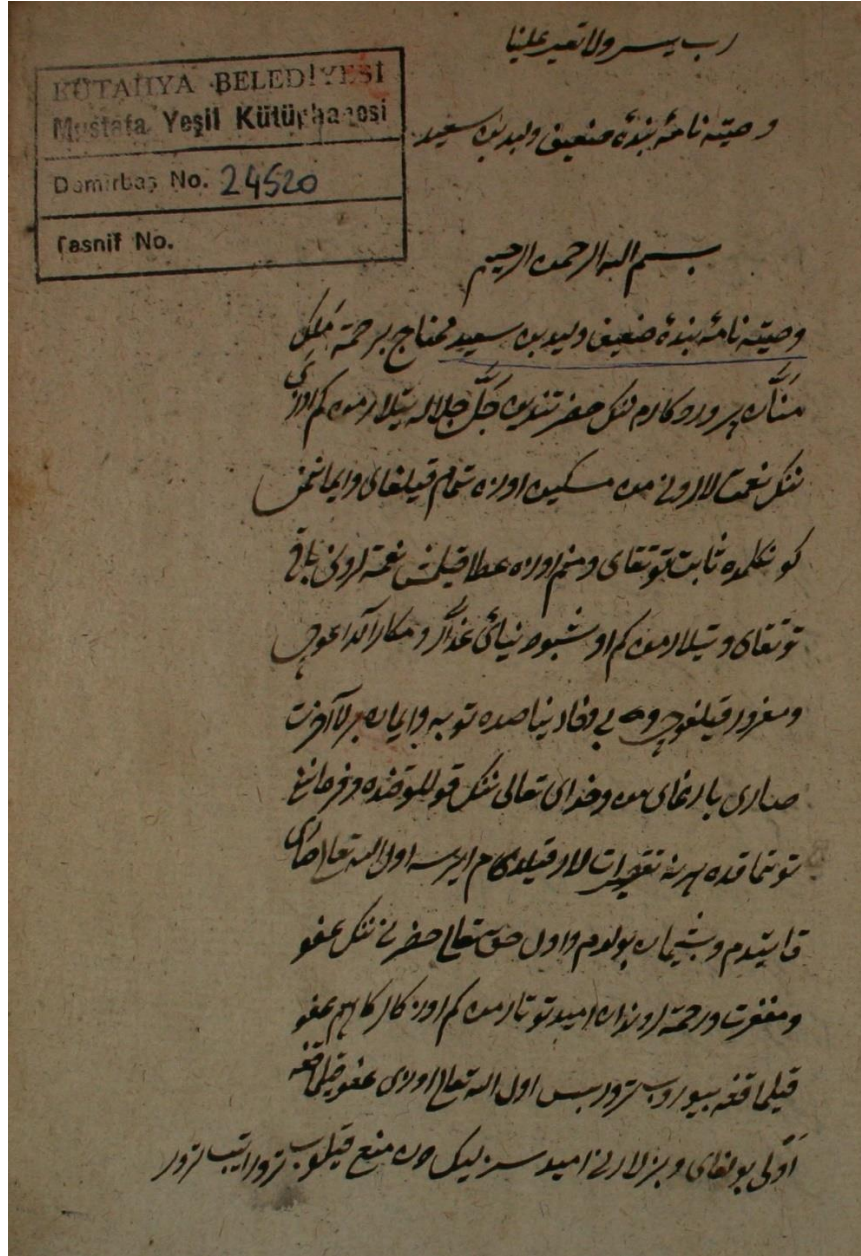 رب يسر ولا تعسر علينا
KÜTAHYA BELEDİYESİ
Mustafa Yeşil Kütüphanesi
Demirbaş No. 24520
Tasnif No.
وصيتنامهٔ بندهٔ ضعيف وليد بن سعيد
بسم الله الرحمن الرحيم
وصيتنامهٔ بندهٔ ضعيف وليد بن سعيد محتاج برحمة ملك
منّان پروردكارم ننك حضرتندين جلّ جلاله تيلارمن كم اوزى
ننك نعمت لارونى من مسكين اوزه تمام قيلغاى وايمانمنى
كونكلمده ثابت توتقاى ومنم اوزه عطا قيلمش نعمتلرونى باقى
توتقاى وتيلارمن كم اوشبو دنيائ غدّار ومكار آلداغوجى
ومغرور قيلغوجى وبى وفا دنياصده توبه وايمان برلا آخرت
صارى بارغاى من وخداى تعالى ننك قوللوقنده وفرمانينى
توتماقده هرنه تقصيرات لار قيلديكم ايرسه اول الله تعالى صارى
قايتدم وپشيمان بولدم واول حق تعالى حضرتى ننك عفو
ومغفرت ورحمتلروندان اميد توتارمن كم اوزكالركا هم عفو
قيلماقغه بيوروب ترور بس اول الله تعالى اوزى عفو قيلماقغه
اولى بولغاى وبزلارنى اميدسزليك دن منع قيلوب ترور ايتب ترور